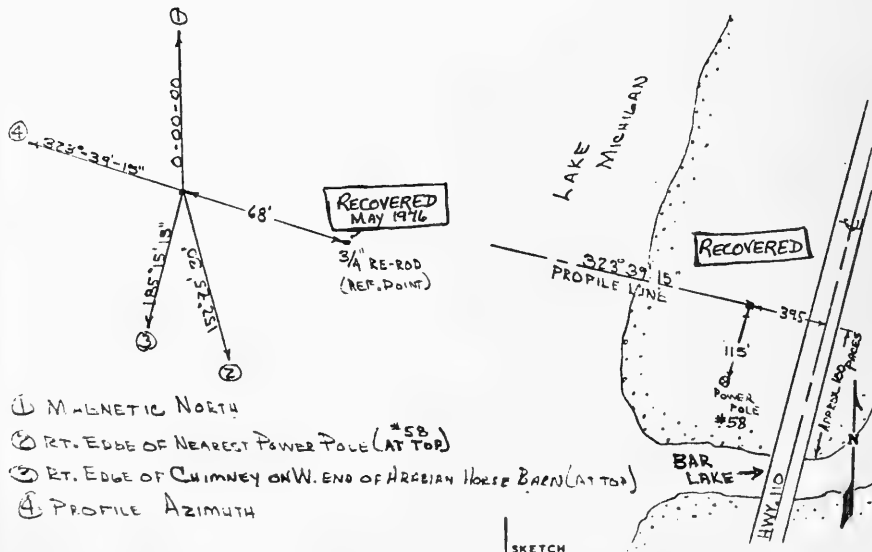 ①
0-00-00
④
323°-39'-15"
68'
RECOVERED
MAY 1976
3/4" RE-ROD
(REF. POINT)
185°15'15"
③
②
① MAGNETIC NORTH
② RT. EDGE OF NEAREST POWER POLE (#58 AT TOP)
③ RT. EDGE OF CHIMNEY ON W. END OF ARABIAN HORSE BARN (AT TOP)
④ PROFILE AZIMUTH
LAKE
MICHIGAN
RECOVERED
323° 39' 15"
PROFILE LINE
395
115'
POWER
POLE
#58
APPROX 100 PACES
N
BAR
LAKE
HWY. 110
SKETCH